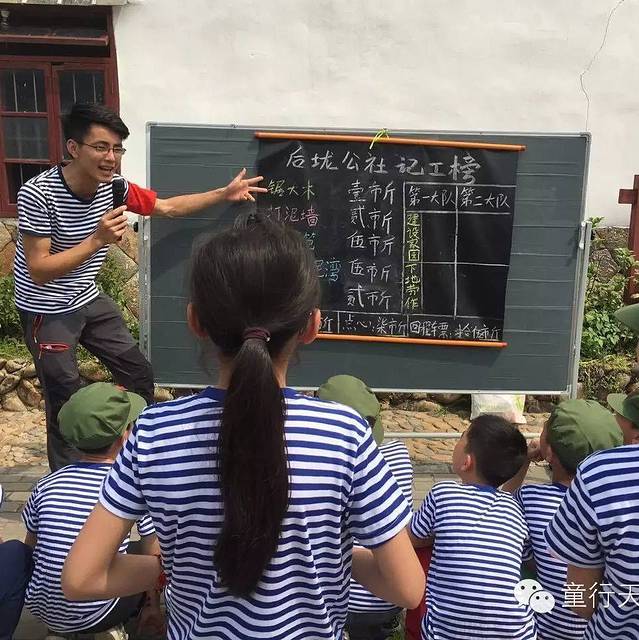 后垅公社记工榜
锯大木 壹市斤 第一大队 第二大队
打泥墙 贰市斤
伍市斤
湾 伍市斤
贰市斤
建设家园下地劳作
斤 点心:柒市斤 回程车票:拾伍市斤
童行天